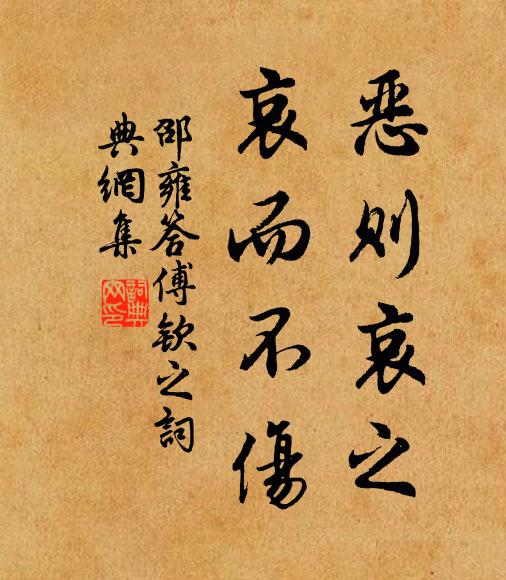 恶则哀之
哀而不傷
邵雍答傅欽之詞
典網集
詞典網印